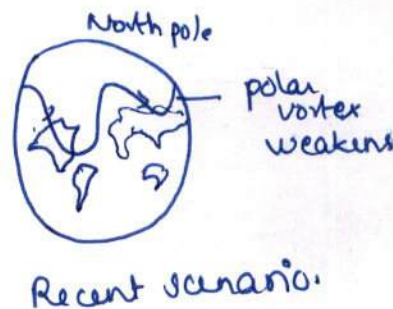 North pole
polar
vortex
weakens
Recent scenario.